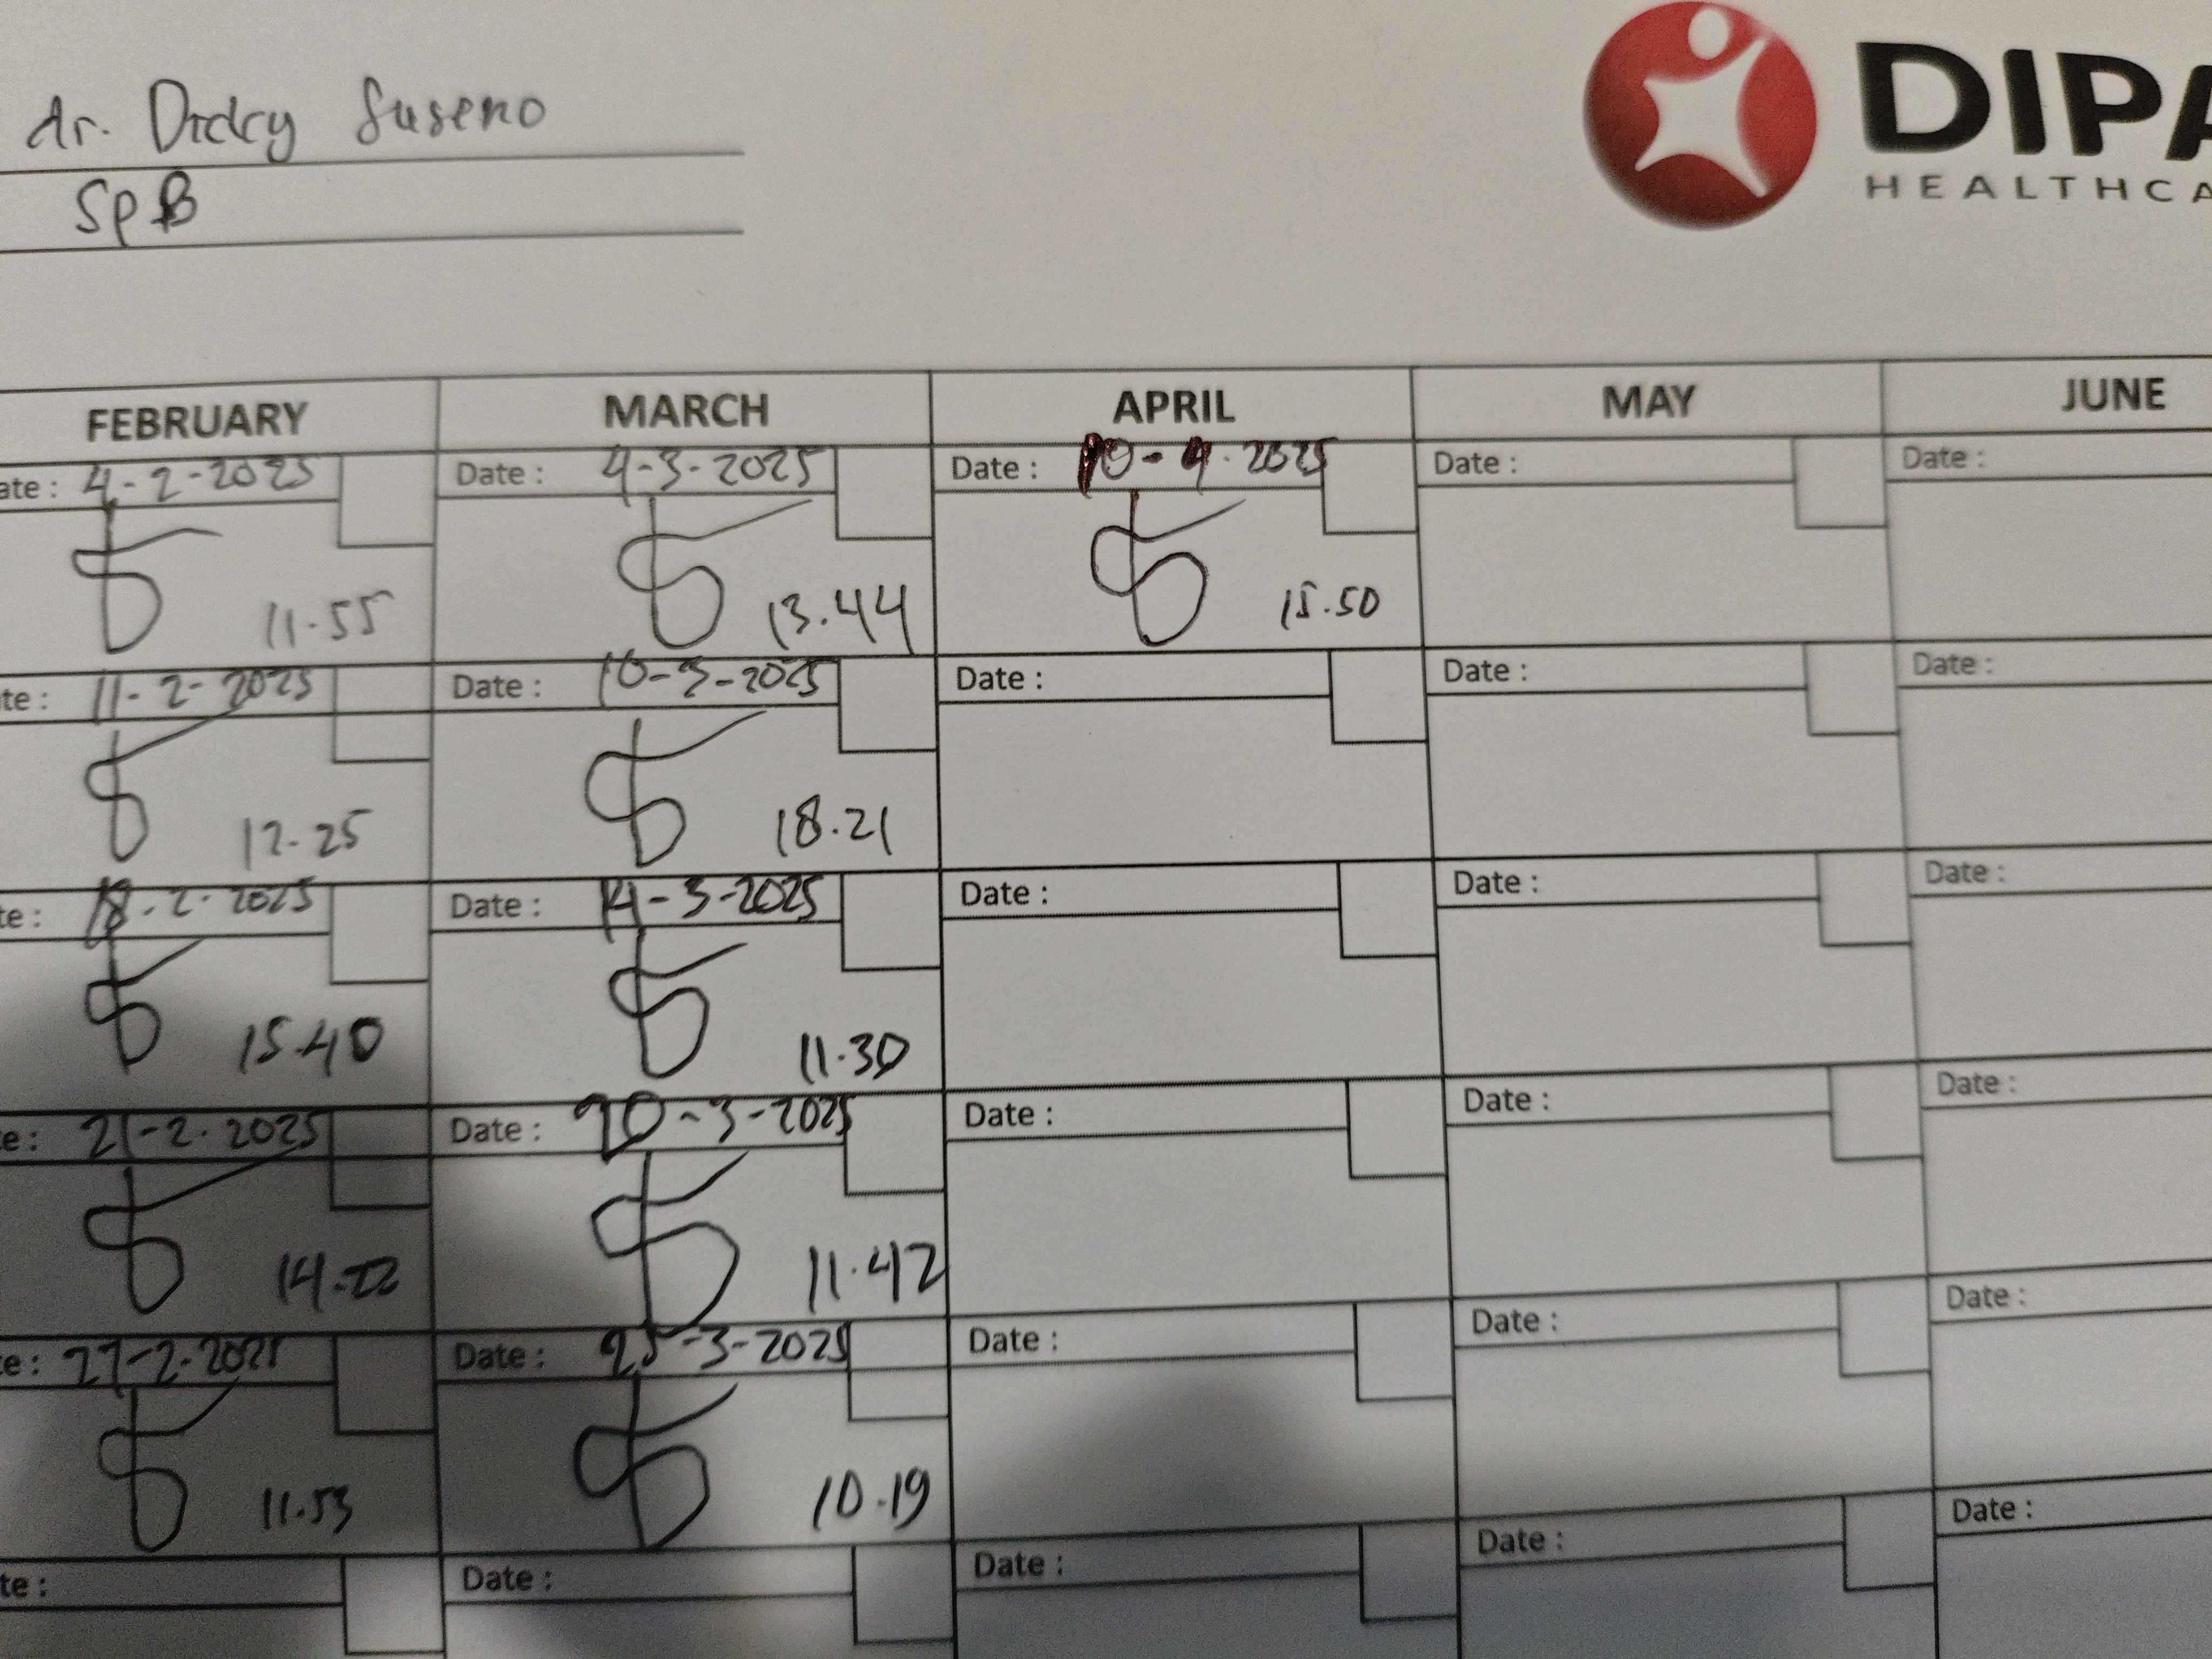 dr. Dicky Suseno
SpB
DIPA
HEALTHCA
FEBRUARY MARCH APRIL MAY JUNE
ate : 4-2-2025 Date : 4-3-2025 Date : 10-4-2025 Date : Date :
11.55 13.44 15.50
te : 11-2-2025 Date : 10-3-2025 Date : Date : Date :
12.25 18.21
te : 18-2-2025 Date : 14-3-2025 Date : Date : Date :
15.40 11.30
e : 21-2-2025 Date : 20-3-2025 Date : Date : Date :
14.22 11.42
e : 27-2-2025 Date : 25-3-2025 Date : Date : Date :
11.53 10.19
te : Date : Date : Date : Date :